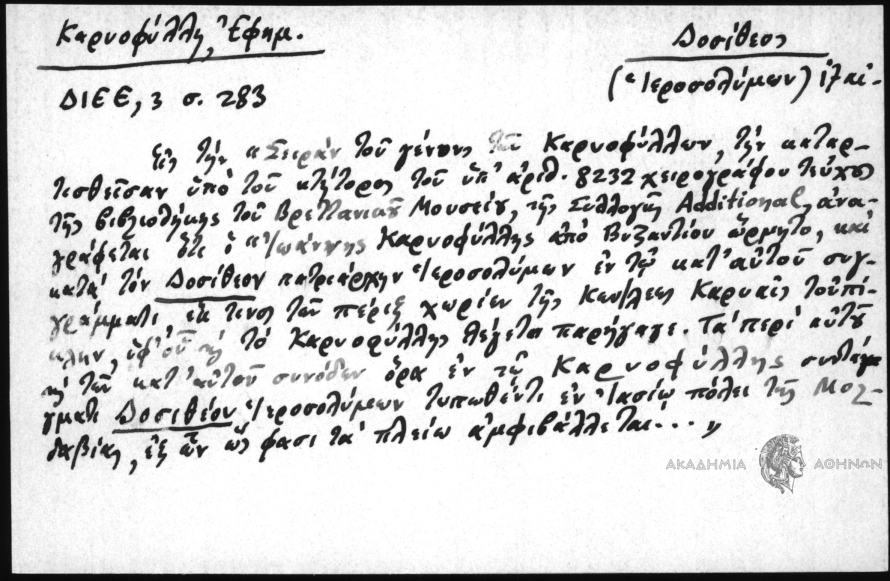 Καρυοφύλλη, Ἐφημ.
Δοσίθεος
(Ἱεροσολύμων)
ΔΙΕΕ, 3 σ. 283
Εἰς τὴν "Σειρὰν τοῦ γένους τῶν Καρυοφύλλων, τὴν καταρ-
τισθεῖσαν ὑπὸ τοῦ κτήτορος τοῦ ὑπ' ἀριθ. 8232 χειρογράφου τεύχους
τῆς βιβλιοθήκης τοῦ Βρεττανικοῦ Μουσείου, τῆς Συλλογῆς Additional, ἀνα-
γράφεται ὅτι ὁ "Ἰωάννης Καρυοφύλλης ἀπὸ Βυζαντίου ὥρμητο, καὶ
κατὰ τὸν Δοσίθεον πατριάρχην Ἱεροσολύμων ἐν τῷ κατ' αὐτοῦ συγ-
γράμματι ἐκ τινος τῶν πέριξ χωρίων τῆς Κων/λεως Καρυαῖς τοὐπί-
κλην, ἀφ' οὗ καὶ τὸ Καρυοφύλλης λέγεται παρήγαγε. Τὰ περὶ αὐτοῦ
καὶ τῶν κατ' αὐτοῦ συνόδων ὅρα ἐν τῷ Καρυοφύλλης συντάγ-
γματι Δοσιθέου Ἱεροσολύμων τυπωθέντι ἐν Ἰασίῳ πόλει τῆς Μολ-
δαβίας, ἐξ ὧν ὥς φασι τὰ πλείω ἀμφιβάλλεται... "
ΑΚΑΔΗΜΙΑ ΑΘΗΝΩΝ